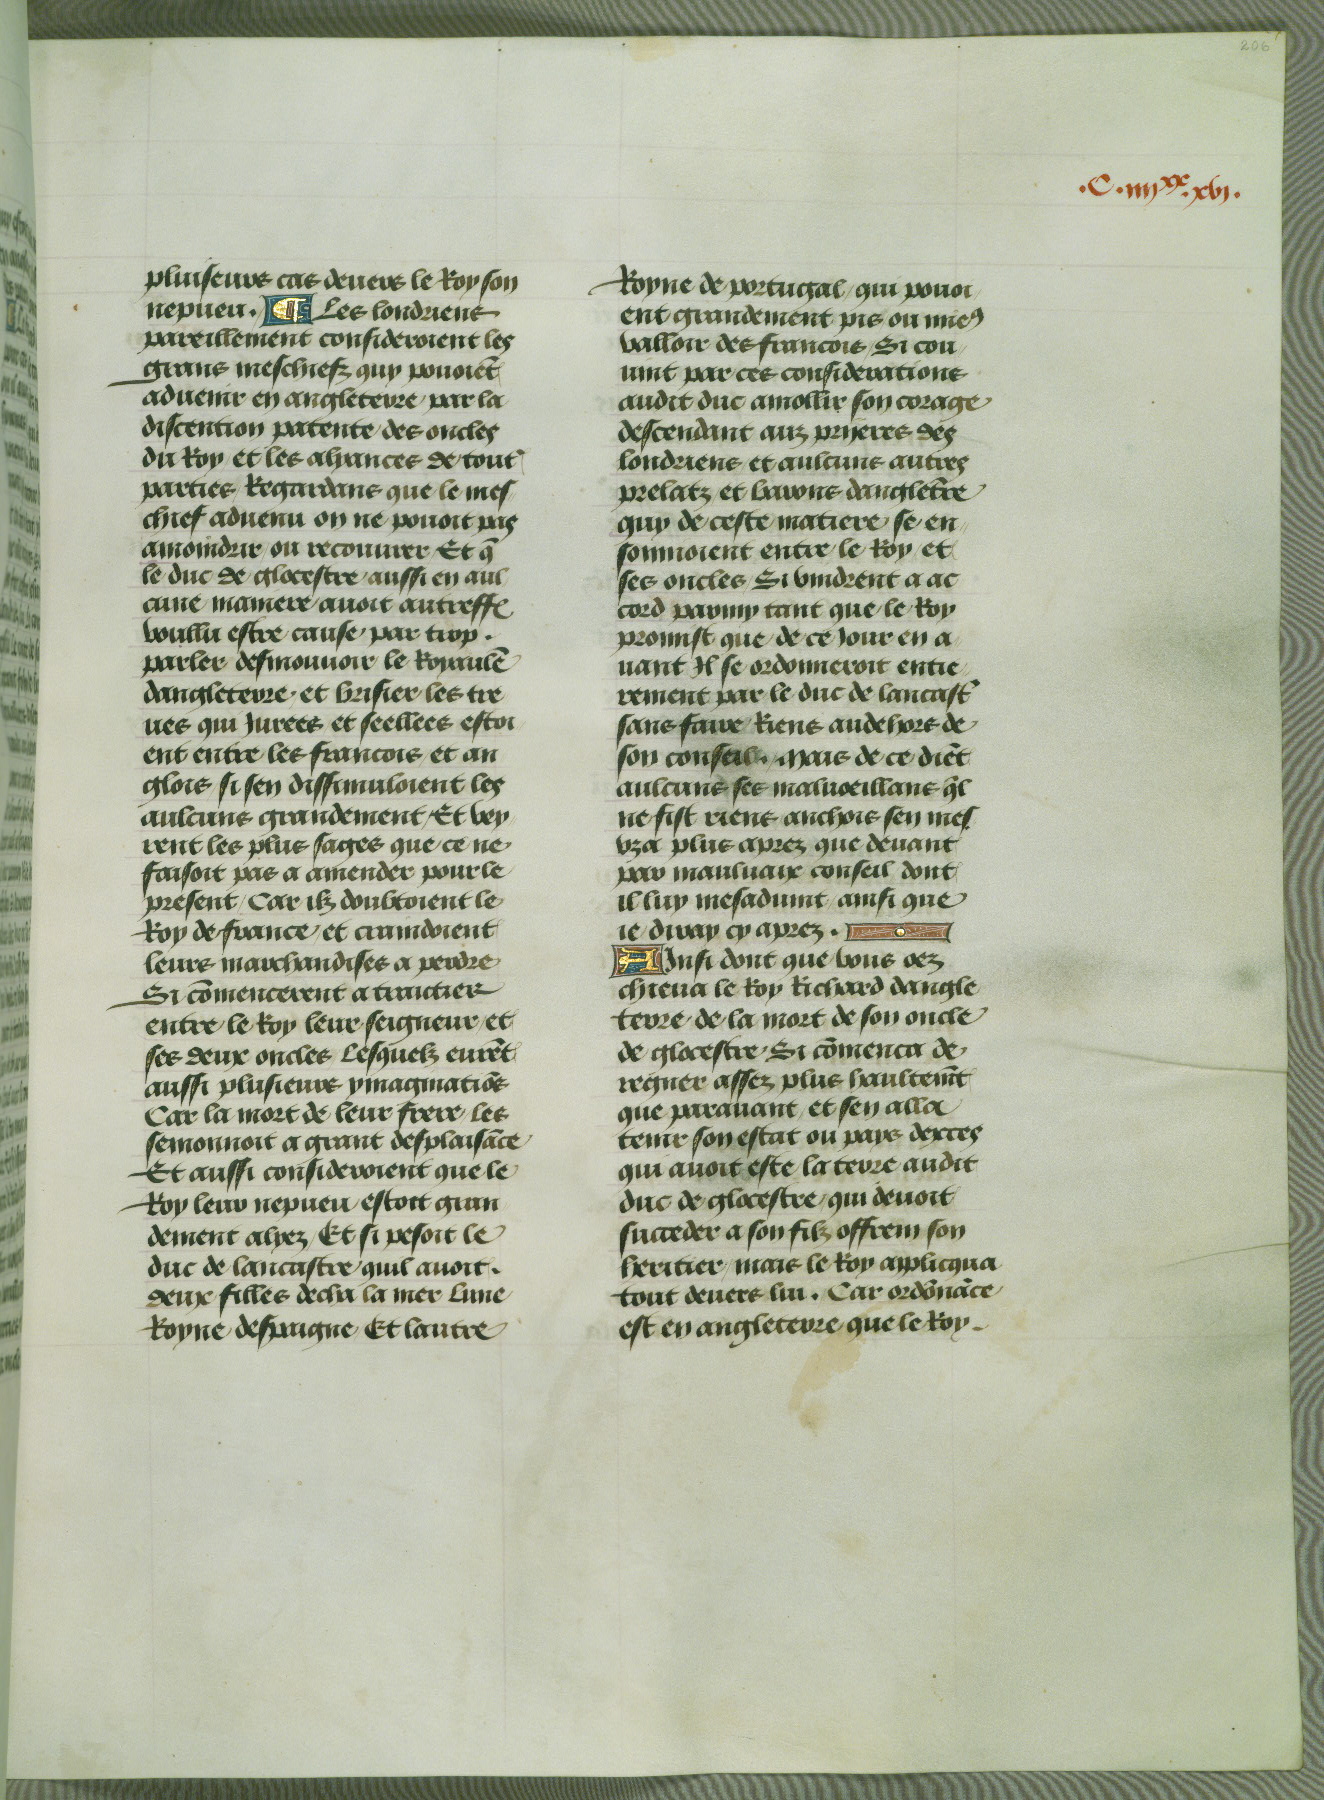 206
.C.iiijxx.xvj.
pluiseurs cas deuers le Roy son
nepueu. Les londriens
pareillement consideroient les
grans meschiefz quy pouoiēt
aduenir en angleterre par la
discention patente des oncles
du Roy et les alyances de tout
parties Regardans que le mes
chief aduenu on ne pouoit pas
amoindrir ou recouurer Et q̄
le duc de glocestre aussi en aul
cune maniere auoit autreffe
voullu estre cause par trop.
parler desmouuoir le Royaulē
dangleterre et brisier les tre
ues qui Jurees et seellees estoi
ent entre les francois et an
glois si sen dissimuloient les
aulcuns grandement Et vey
rent les plus sages que ce ne
faisoit pas a amender pour le
present Car ilz doubtoient le
Roy de france et craindoient
leurs marchandises a perdre
Si cōmencerent a traictier
entre le Roy leur seigneur et
ses deux oncles Lesquelz eurēt
aussi plusieurs ymaginatiōs
Car la mort de leur frere les
semonnoit a grant desplaisāce
Et aussi consideroient que le
Roy leur nepueu estoit gran
dement alyez Et si pesoit le
duc de lancastre quil auoit.
deux filles decha la mer Lune
Royne despaigne Et lautre
Royne de portugal qui pouoi
ent grandement pis ou mieꝰ
valloir des francois Si cou
uint par ces considerations
audit duc amollir son corage
descendant auz prijeres des
londriens et aulcuns autres
prelatz et barons dangletr̄e
quy de ceste matiere se en
sonnioient entre le Roy et
ses oncles Si vindrent a ac
cord parmy tant que le Roy
promist que de ce Jour en a
uant Jl se ordonneroit entie
rement par le duc de lancast'
sans faire Riens audehors de
son conseil. Mais de ce diēt
aulcuns ses maluoeillans q̄l
ne fist riens anchois sen mes
vza plus aprez que deuant
par mauluaix conseil dont
il luy mesaduint ainsi que
ie diray cy aprez.
AJnsi dont que vous oez
chieua le Roy Richard dangle
terre de la mort de son oncle
de glocestre Si cōmenca de
regner assez plus haultem̄t
que parauant et sen alla
tenir son estat ou pays dexces
qui auoit este la terre audit
duc de glocestre qui deuoit
succeder a son filz offrem son
heritier mais le Roy applicqua
tout deuers lui. Car ordōnāce
est en angleterre que le Roy